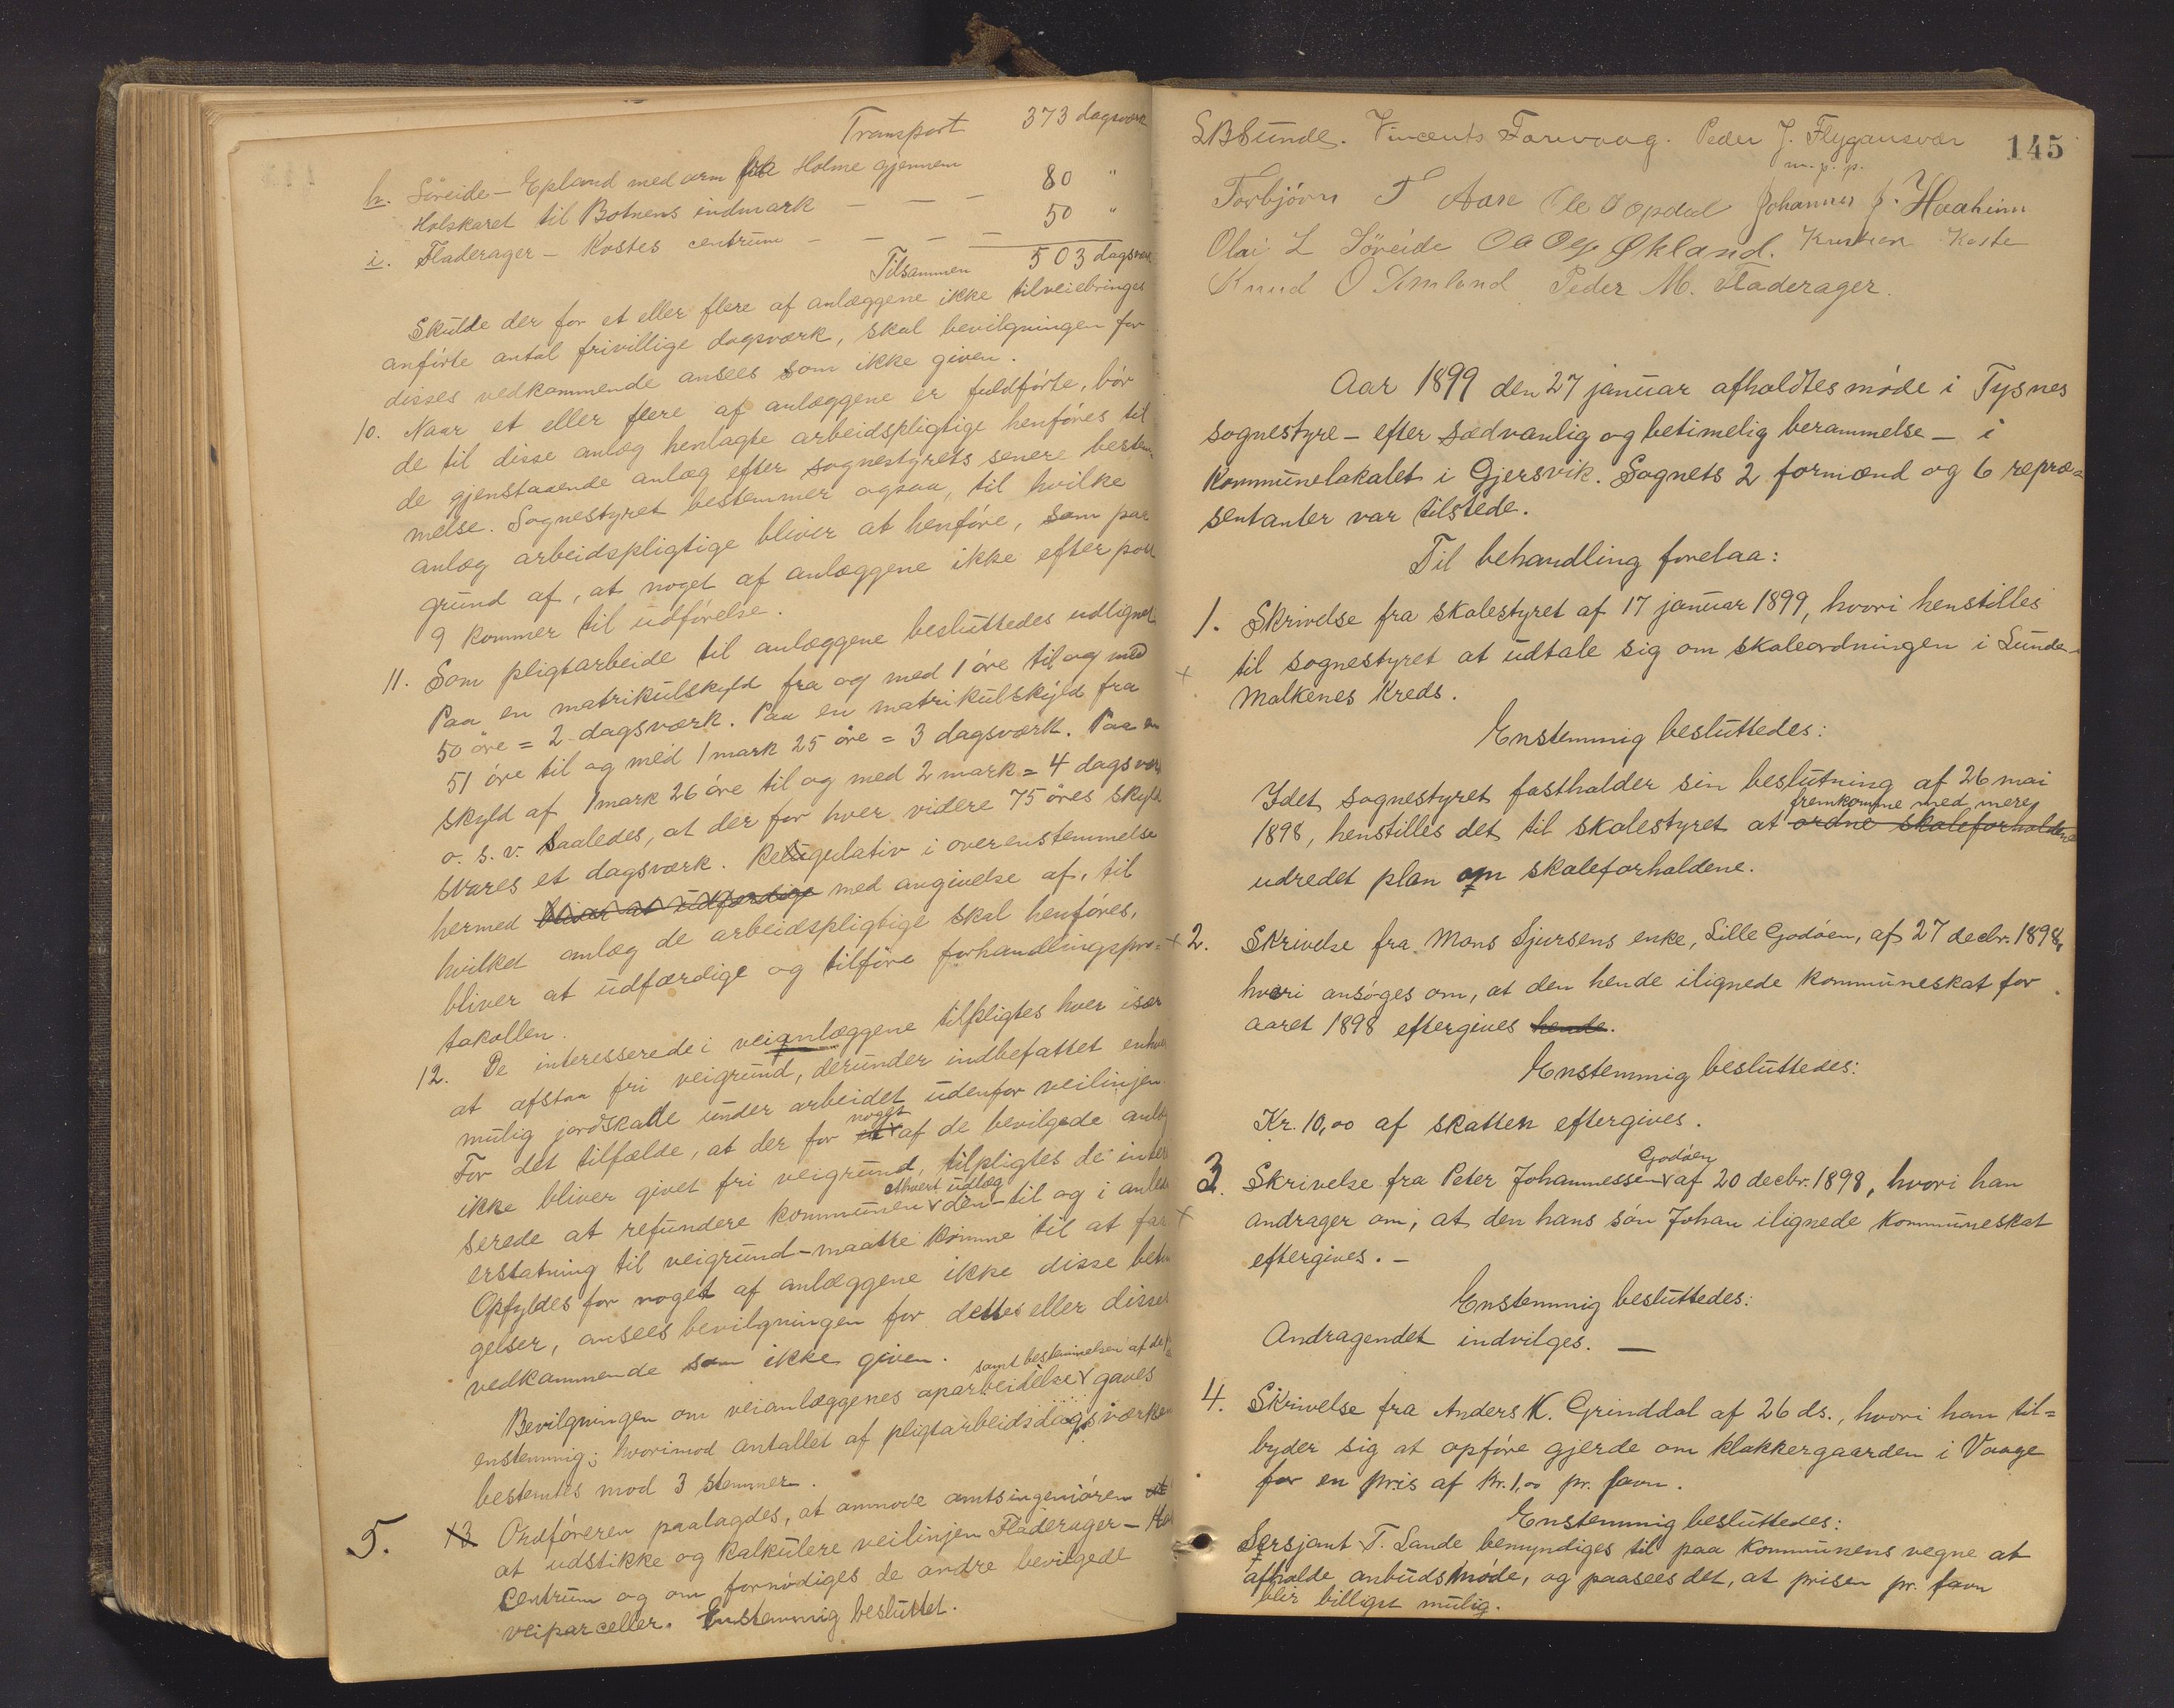 Transport 373 dagsværk
h. Söreide - Epland med arm fra Holme gjennem
Holskaret til Botnens indmark — — — 80 "
i. Fladerager - Kostes centrum — — — — 50 "
Tilsammen 503 dagsværk
Skulde der for et eller flere af anlæggene ikke tilveiebringes
anførte antal frivillige dagsværk, skal bevilgningen for
disses vedkommende ansees som ikke given.
10. Naar et eller flere af anlæggene er fuldførte, bör
de til disse anlæg henlagte arbeidspligtige henføres til
de gjenstaaende anlæg efter sognestyrets senere bestem-
melse. Sognestyret bestemmer ogsaa, til hvilke
anlæg arbeidspligtige bliver at henføre, som paa
grund af, at noget af anlæggene ikke efter post
9 kommer til udførelse.
11. Som pligtarbeide til anlæggene besluttedes udlignet
Paa en matrikulskyld fra og med 1 öre til og med
50 öre = 2 dagsværk. Paa en matrikulskyld fra
51 öre til og med 1 mark 25 öre = 3 dagsværk. Paa en
skyld af 1 mark 26 öre til og med 2 mark = 4 dagsværk
o. s. v. saaledes, at der for hver videre 75 öres skyld
svares et dagsværk. Regulativ i overenstemmelse
hermed bliver at udfærdige med angivelse af, til
hvilket anlæg de arbeidspligtige skal henføres,
bliver at udfærdige og tilføre forhandlingspro-
tokollen.
12. De interesserede i veianlæggene tilpligtes hver især
at afstaa fri veigrund, derunder indbefattet enhver
mulig jordskade under arbeidet udenfor veilinjen.
For det tilfælde, at der for et noget af de bevilgede anlæg
ikke bliver givet fri veigrund, tilpligtes de inter
serede at refundere kommunen ethvert udlæg den - til og i anled
erstatning til veigrund - maatte komme til at faa
Opfyldes for noget af anlæggene ikke disse betin
gelser, ansees bevilgningen for dettes eller disses
vedkommende som ikke given.
Bevilgningen om veianlæggenes oparbeidelse samt bestemmelsen af de gaves
enstemmig; hvorimod antallet af pligtarbeidsdagsværker
bestemtes mod 3 stemmer.
5. 13 Ordføreren paalagdes, at anmode amtsingeniören
at udstikke og kalkulere veilinjen Fladerager -
centrum og om fornödiges de andre bevilgede
veiparceller. Enstemmig besluttet.
145
LB Sunde. Vincents Farvaag. Peder J. Flygansvær
m. p. p.
Torbjörn T Aase Ole O Opdal Johannes J. Haaheim
Olai L Söreide Ole Økland. Kristen Koste
Knud O Amland Peder M. Fladerager.
Aar 1899 den 27 januar afholdtes møde i Tysnes
sognestyre - efter sædvanlig og betimelig berammelse - i
kommunelokalet i Gjersvik. Sognets 2 formænd og 6 repræ=
sentanter var tilstede.
Til behandling forelaa:
1. Skrivelse fra skolestyret af 17 januar 1899, hvori henstilles
+ til sognestyret at udtale sig om skoleordningen i Sunde-
Malkenes Kreds.
Enstemmig besluttedes:
Idet sognestyret fastholder sin beslutning af 26 mai
fremkomme med mere
1898, henstilles det til skolestyret at ordne skoleforholdene
udredet plan om skoleforholdene.
+ 2. Skrivelse fra Mons Sjursens enke, Lille Godöen, af 27 decbr. 1898,
hvori ansöges om, at den hende ilignede kommuneskat for
aaret 1898 eftergives hende.
Enstemmig besluttedes:
Kr. 10,00 af skatten eftergives.
Godöen
3. Skrivelse fra Peter Johannessen af 20 decbr. 1898, hvori han
+ andrager om, at den hans sön Johan ilignede kommuneskat
eftergives. -
Enstemmig besluttedes:
Andragendet indvilges. —
4. Skrivelse fra Anders K. Grinddal af 26 ds., hvori han til=
byder sig at opføre gjerde om klokkergaarden i Vaage
for en pris af kr. 1,00 pr. favn.
Enstemmig besluttedes:
Sersjant T. Lande bemyndiges til paa kommunens vegne at
afholde anbudsmøde, og paasees det, at prisen pr. favn
blir billigst mulig.